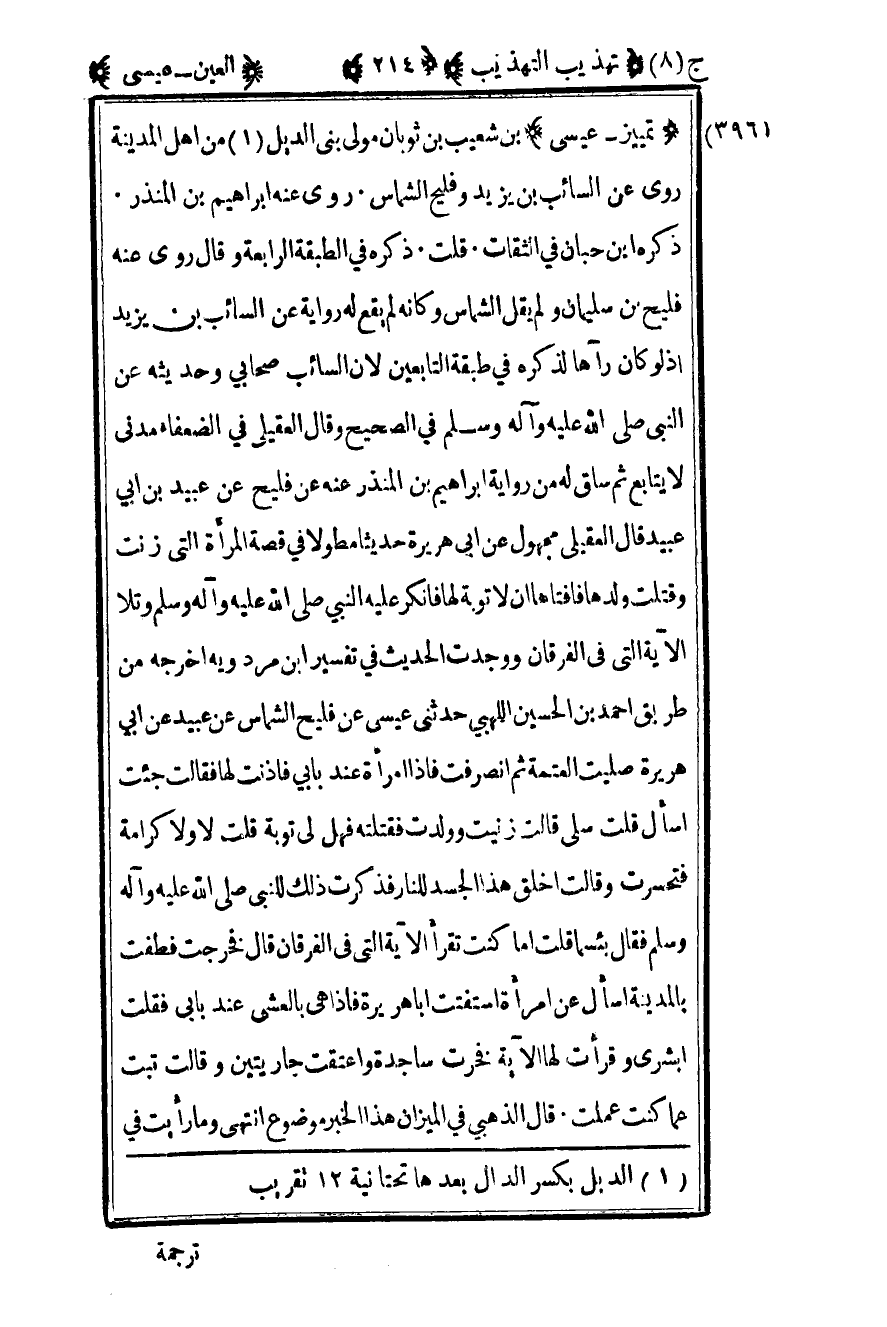 ج (٨) ﴿ تهذيب التهذيب ﴾ ﴿ ٢١٤ ﴾ ﴿ العين - عيسى ﴾
(٣٩٦) ﴿ تمييز - عيسى ﴾ بن شعيب بن ثوبان مولى بنى الديل (١) من اهل المدينة
روى عن السائب بن يزيد وفليح الشماس · روى عنه ابراهيم بن المنذر ·
ذكره ابن حبان في الثقات · قلت · ذكره في الطبقة الرابعة وقال روى عنه
فليح بن سليمان و لم يقل الشماس وكانه لم يقع له رواية عن السائب بن يزيد
اذلو كان رآها لذكره في طبقة التابعين لان السائب صحابي وحديثه عن
النبى صلى الله عليه وآله وسلم في الصحيح وقال العقيلى في الضعفاء مدنى
لا يتابع ثم ساق له من رواية ابراهيم بن المنذر عنه عن فليح عن عبيد بن ابي
عبيد قال العقيلى مجهول عن ابى هريرة حديثا مطولا في قصة المرأة التى زنت
وقتلت ولدها فافتاها ان لا توبة لها فانكر عليه النبي صلى الله عليه وآله وسلم وتلا
الآية التى فى الفرقان ووجدت الحديث في تفسير ابن مردويه اخرجه من
طريق احمد بن الحسين اللهبي حدثنى عيسى عن فليح الشماس عن عبيد عن ابي
هريرة صليت العتمة ثم انصرفت فاذا امرأة عند بابي فاذنت لها فقالت جئت
اسأل قلت سلى قالت زنيت وولدت فقتلته فهل لى توبة قلت لا ولا كرامة
فتحسرت وقالت اخلق هذا الجسد للنار فذكرت ذلك للنبى صلى الله عليه وآله
وسلم فقال بئسما قلت اما كنت تقرأ الآية التى فى الفرقان قال فخرجت فطفت
بالمدينة اسأل عن امرأة استفتت اباهريرة فاذا هى بالعشى عند بابى فقلت
ابشرى وقرأت لها الآية فخرت ساجدة واعتقت جاريتين و قالت تبت
عما كنت عملت · قال الذهبي في الميزان هذا الخبر موضوع انتهى وما رأيت في
(١) الديل بكسر الدال بعدها تحتانية ١٢ تقريب
ترجمة